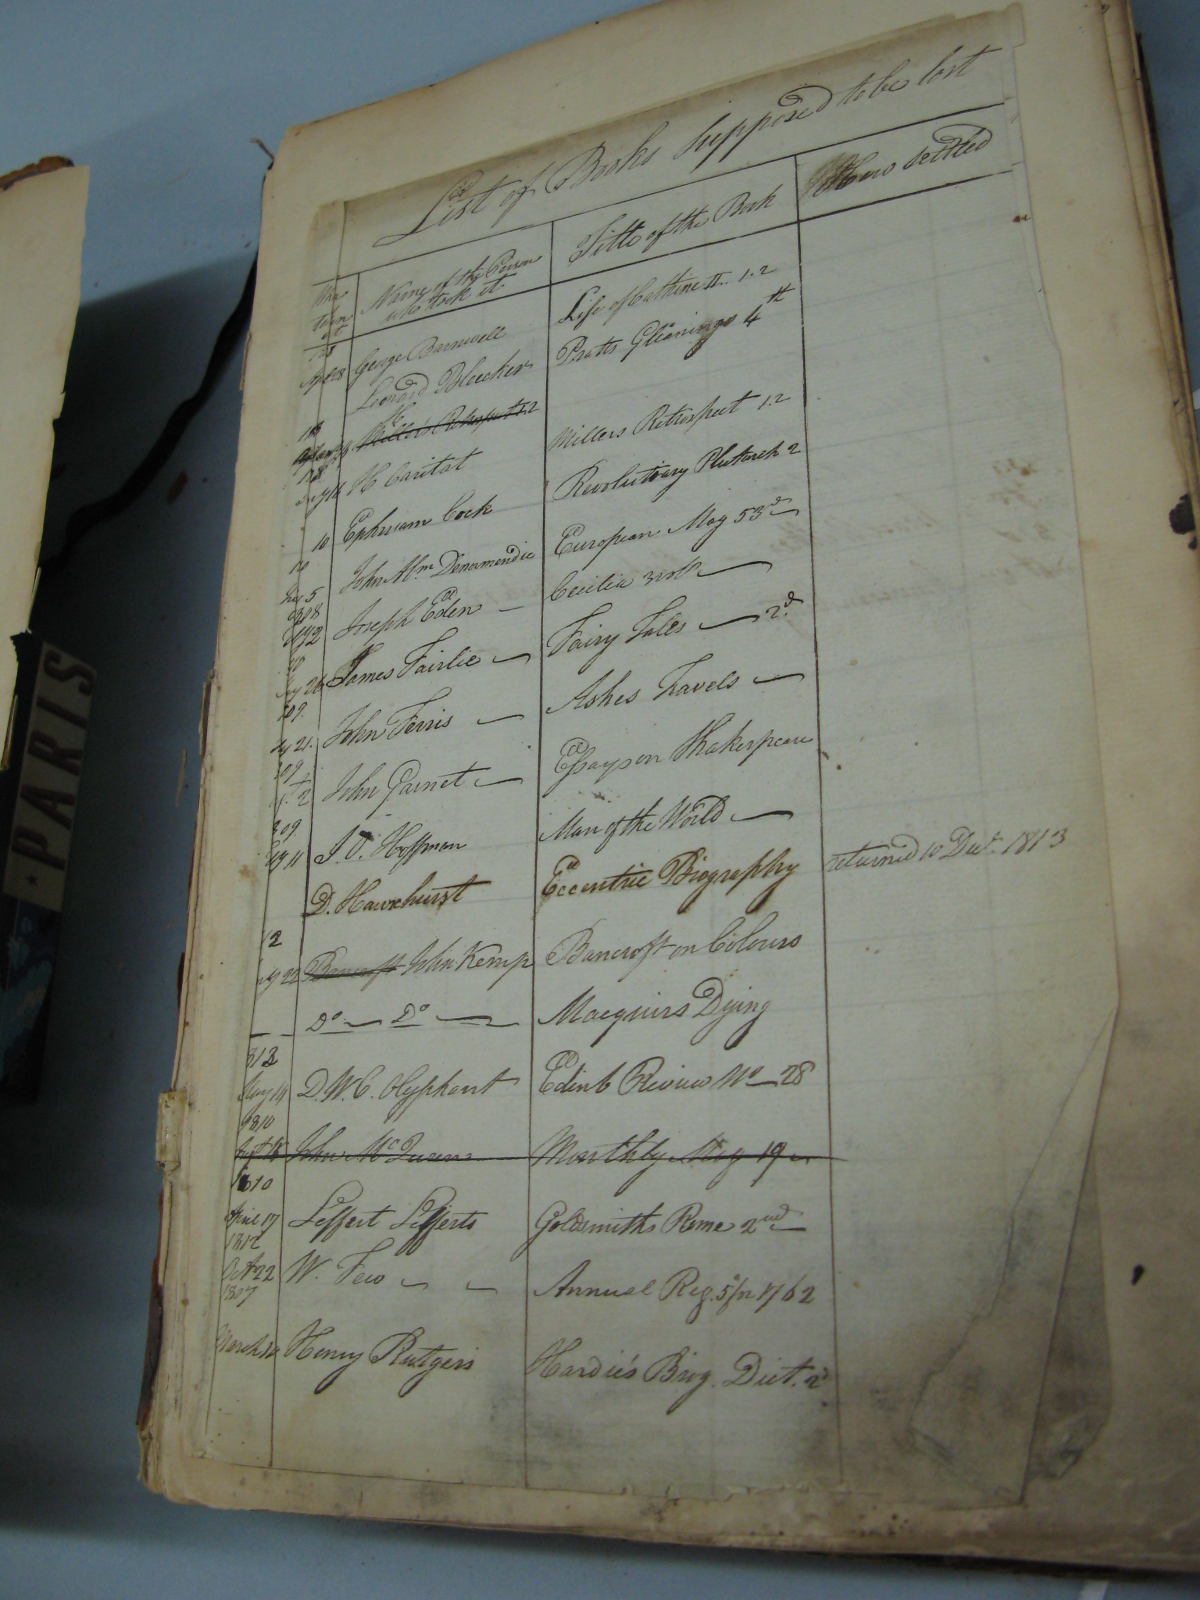 List of Books Supposed to be lost
Name of the Person who took it
Title of the Book
How settled
George Barnwell Life of Cathrine II. 1.2
Leonard Bleecker Pratts Gleanings 4th
Millers Retrospect 1.2
H Caritat Millers Retrospect 1.2
Ephraim Cock Revolutionary Plutarch 2
10 John Abm Denormandie European Mag 53d
5
1808 Joseph Eden Cecilia
James Fairlie Fairy Tales 2d
John Ferris Ashes Travels
21.
John Garnet Essays on Shakespeare
2
809
11 J. O. Hoffman Man of the World
D. Hawxhurst Eccentric Biography returned 10 Dec. 1813
12
22 Bancroft John Kemp Bancroft on Colours
Do Do Macquirs Dying
812
May 14 D. W. C. Olyphant Edinb Review No 28
1810
John McQueen Monthly Mag 19
1810
April 17 Leffert Lefferts Goldsmiths Rome 2nd
1812
Oct 22 W. Few Annual Reg. 5 for 1762
1807
March Henry Rutgers Hardie's Biog. Dict. 2d
PARIS